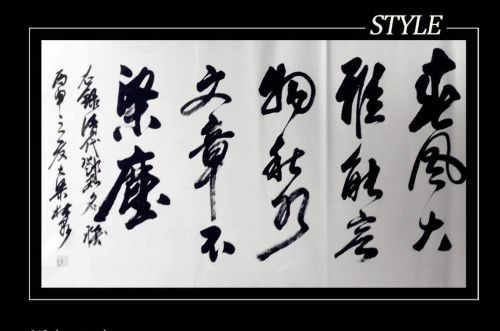 STYLE
春風大
雅能容
物秋水
文章不
染塵
右錄清代鄧石如名聯
丙申之夏